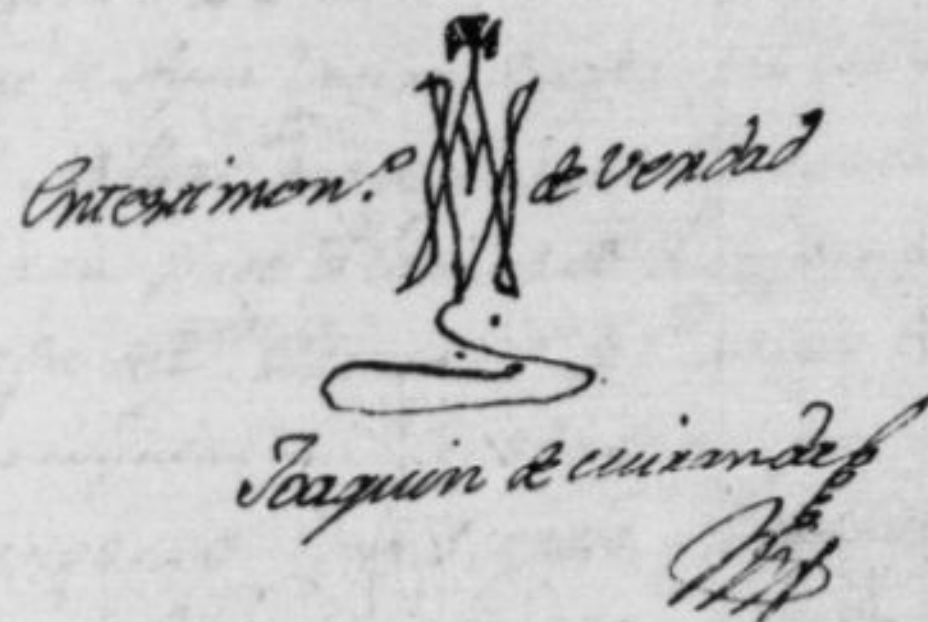 En testimon.º de verdad
Joaquin de Miranda